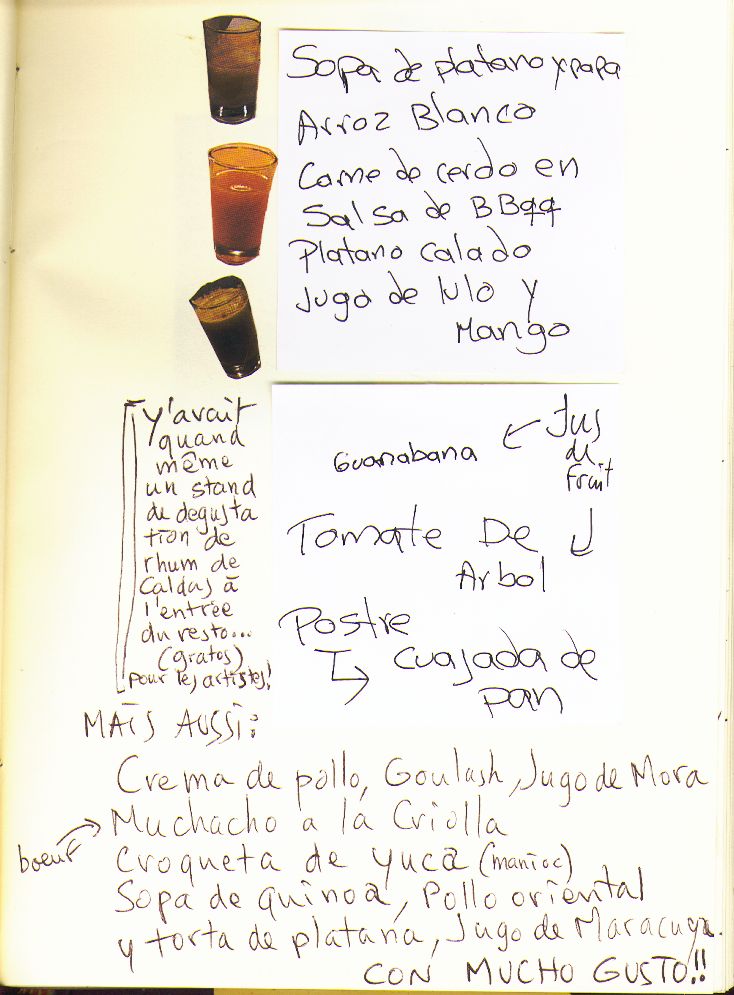 Sopa de platano y papa
Arroz Blanco
Carne de cerdo en
Salsa de BBqq
Platano Calado
Jugo de lulo y
Mango
Guanabana ← Jus
de
Fruit
Tomate De
Arbol
Postre
↳ Cuajada de
pan
Y'avait
quand
même
un stand
de degusta
tion de
rhum de
Caldas à
l'entrée
du resto...
(gratos)
pour les artistes!
MAIS AUSSI:
Crema de pollo, Goulash, Jugo de Mora
Muchacho a la Criolla
boeuf
Croqueta de yuca (manioc)
Sopa de quinoa, Pollo oriental
y torta de platana, Jugo de Maracuya.
CON MUCHO GUSTO!!